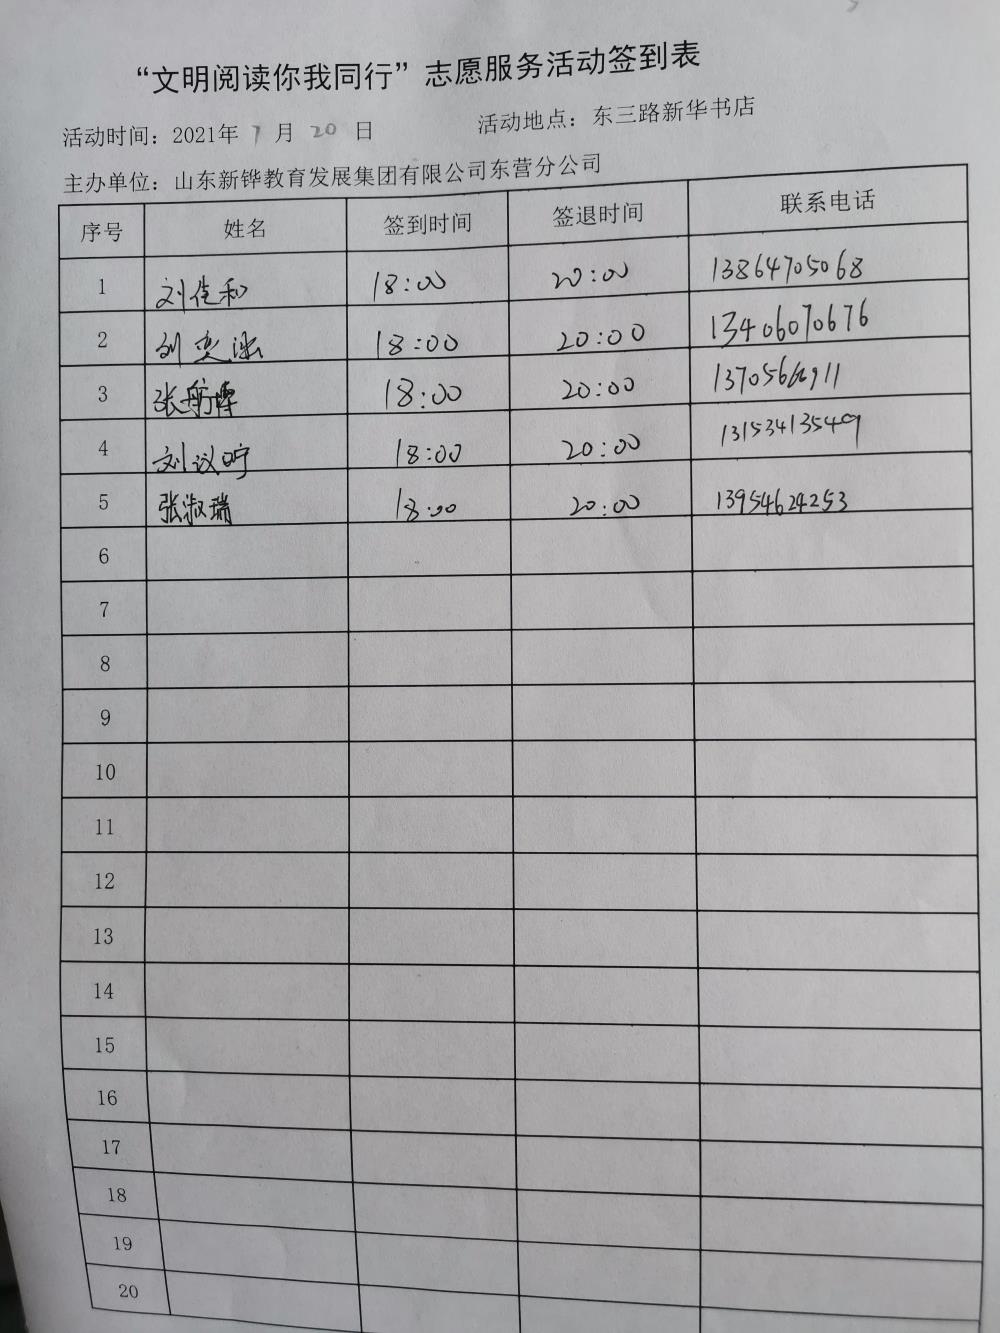 “文明阅读你我同行”志愿服务活动签到表
活动时间：2021年 7 月 20 日 活动地点：东三路新华书店
主办单位：山东新铧教育发展集团有限公司东营分公司
序号 姓名 签到时间 签退时间 联系电话
1 刘佳和 18:00 20:00 13864705068
2 刘奕泓 18:00 20:00 13406070676
3 张航博 18:00 20:00
4 刘议 18:00 20:00 13153413549
5 张淑瑞 18:00 20:00 13954624253
6
7
8
9
10
11
12
13
14
15
16
17
18
19
20